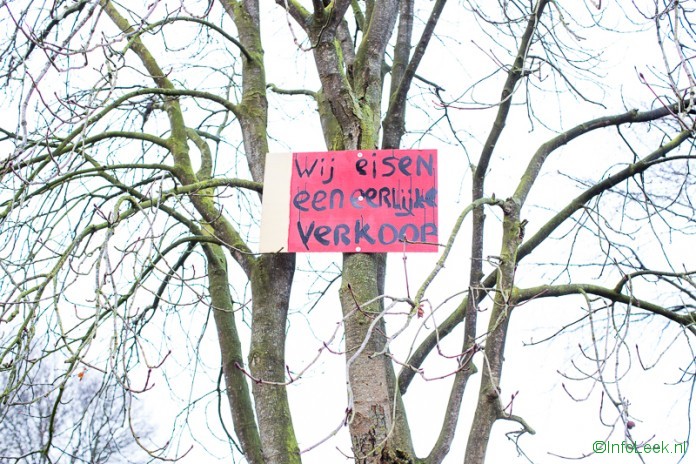 Wij eisen
een eerlijke
verkoop
©InfoLeek.nl